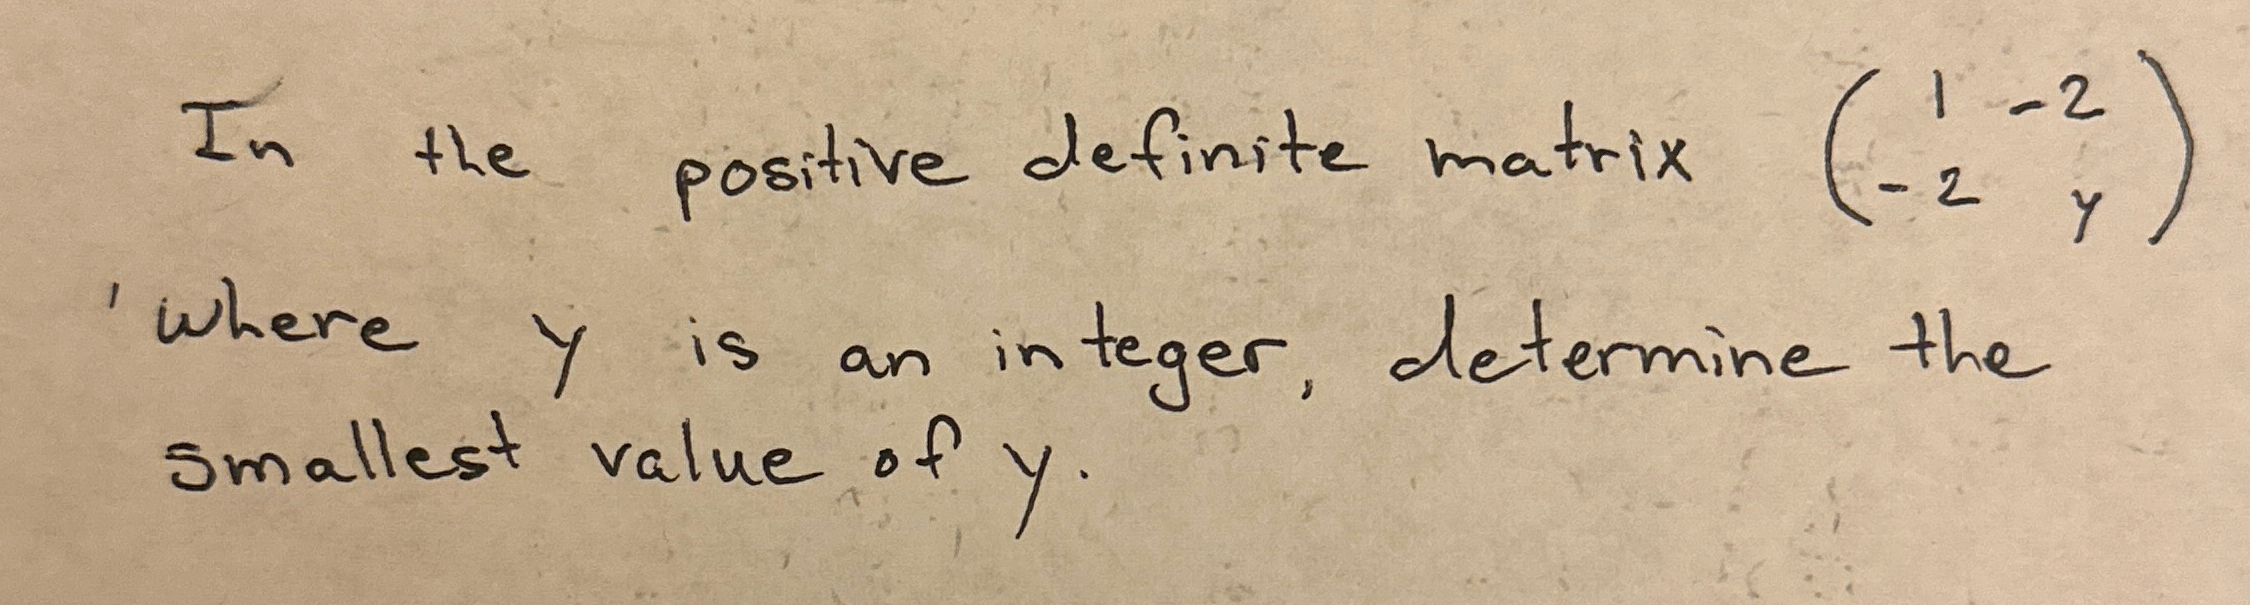 In the positive definite matrix ( 1 -2
-2 y )
'where y is an integer, determine the
smallest value of y.